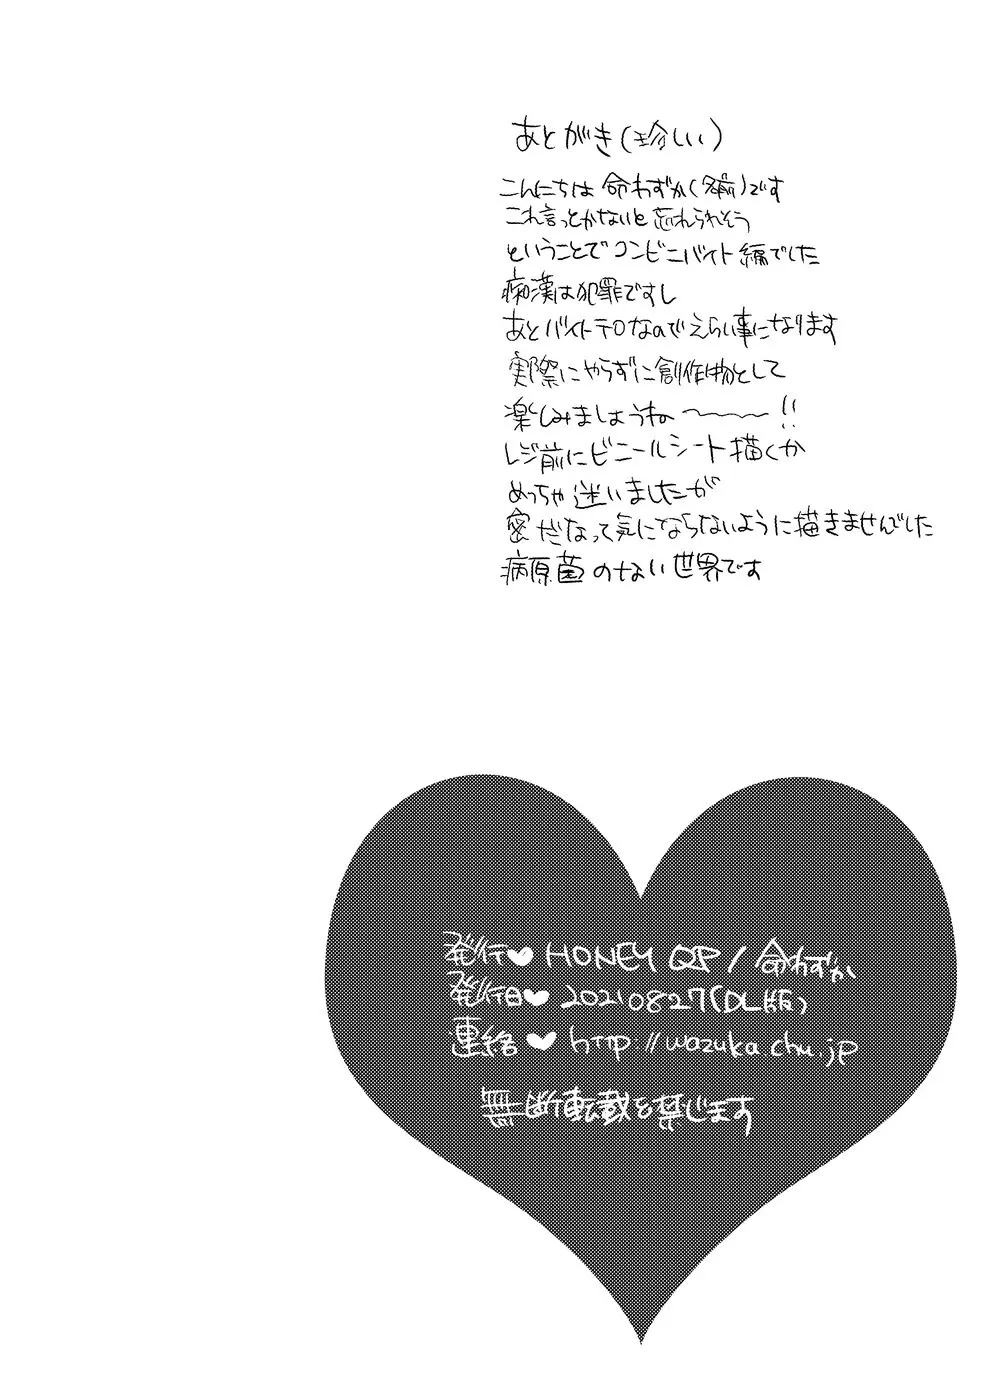 あとがき(珍しい)
こんにちは 命わずか(名前)です
これ言っとかないと忘れられそう
ということでコンビニバイト編でした
痴漢は犯罪ですし
あとバイトテロなのでえらい事になります
実際にやらずに創作物として
楽しみましょうね〜〜〜〜!!
レジ前にビニールシート描くか
めっちゃ迷いましたが
密だなって気にならないように描きませんでした
病原菌のない世界です
発行♥HONEY QP/命わずか
発行日♥20210827(DL版)
連絡♥http://wazuka.chu.jp
無断転載を禁じます